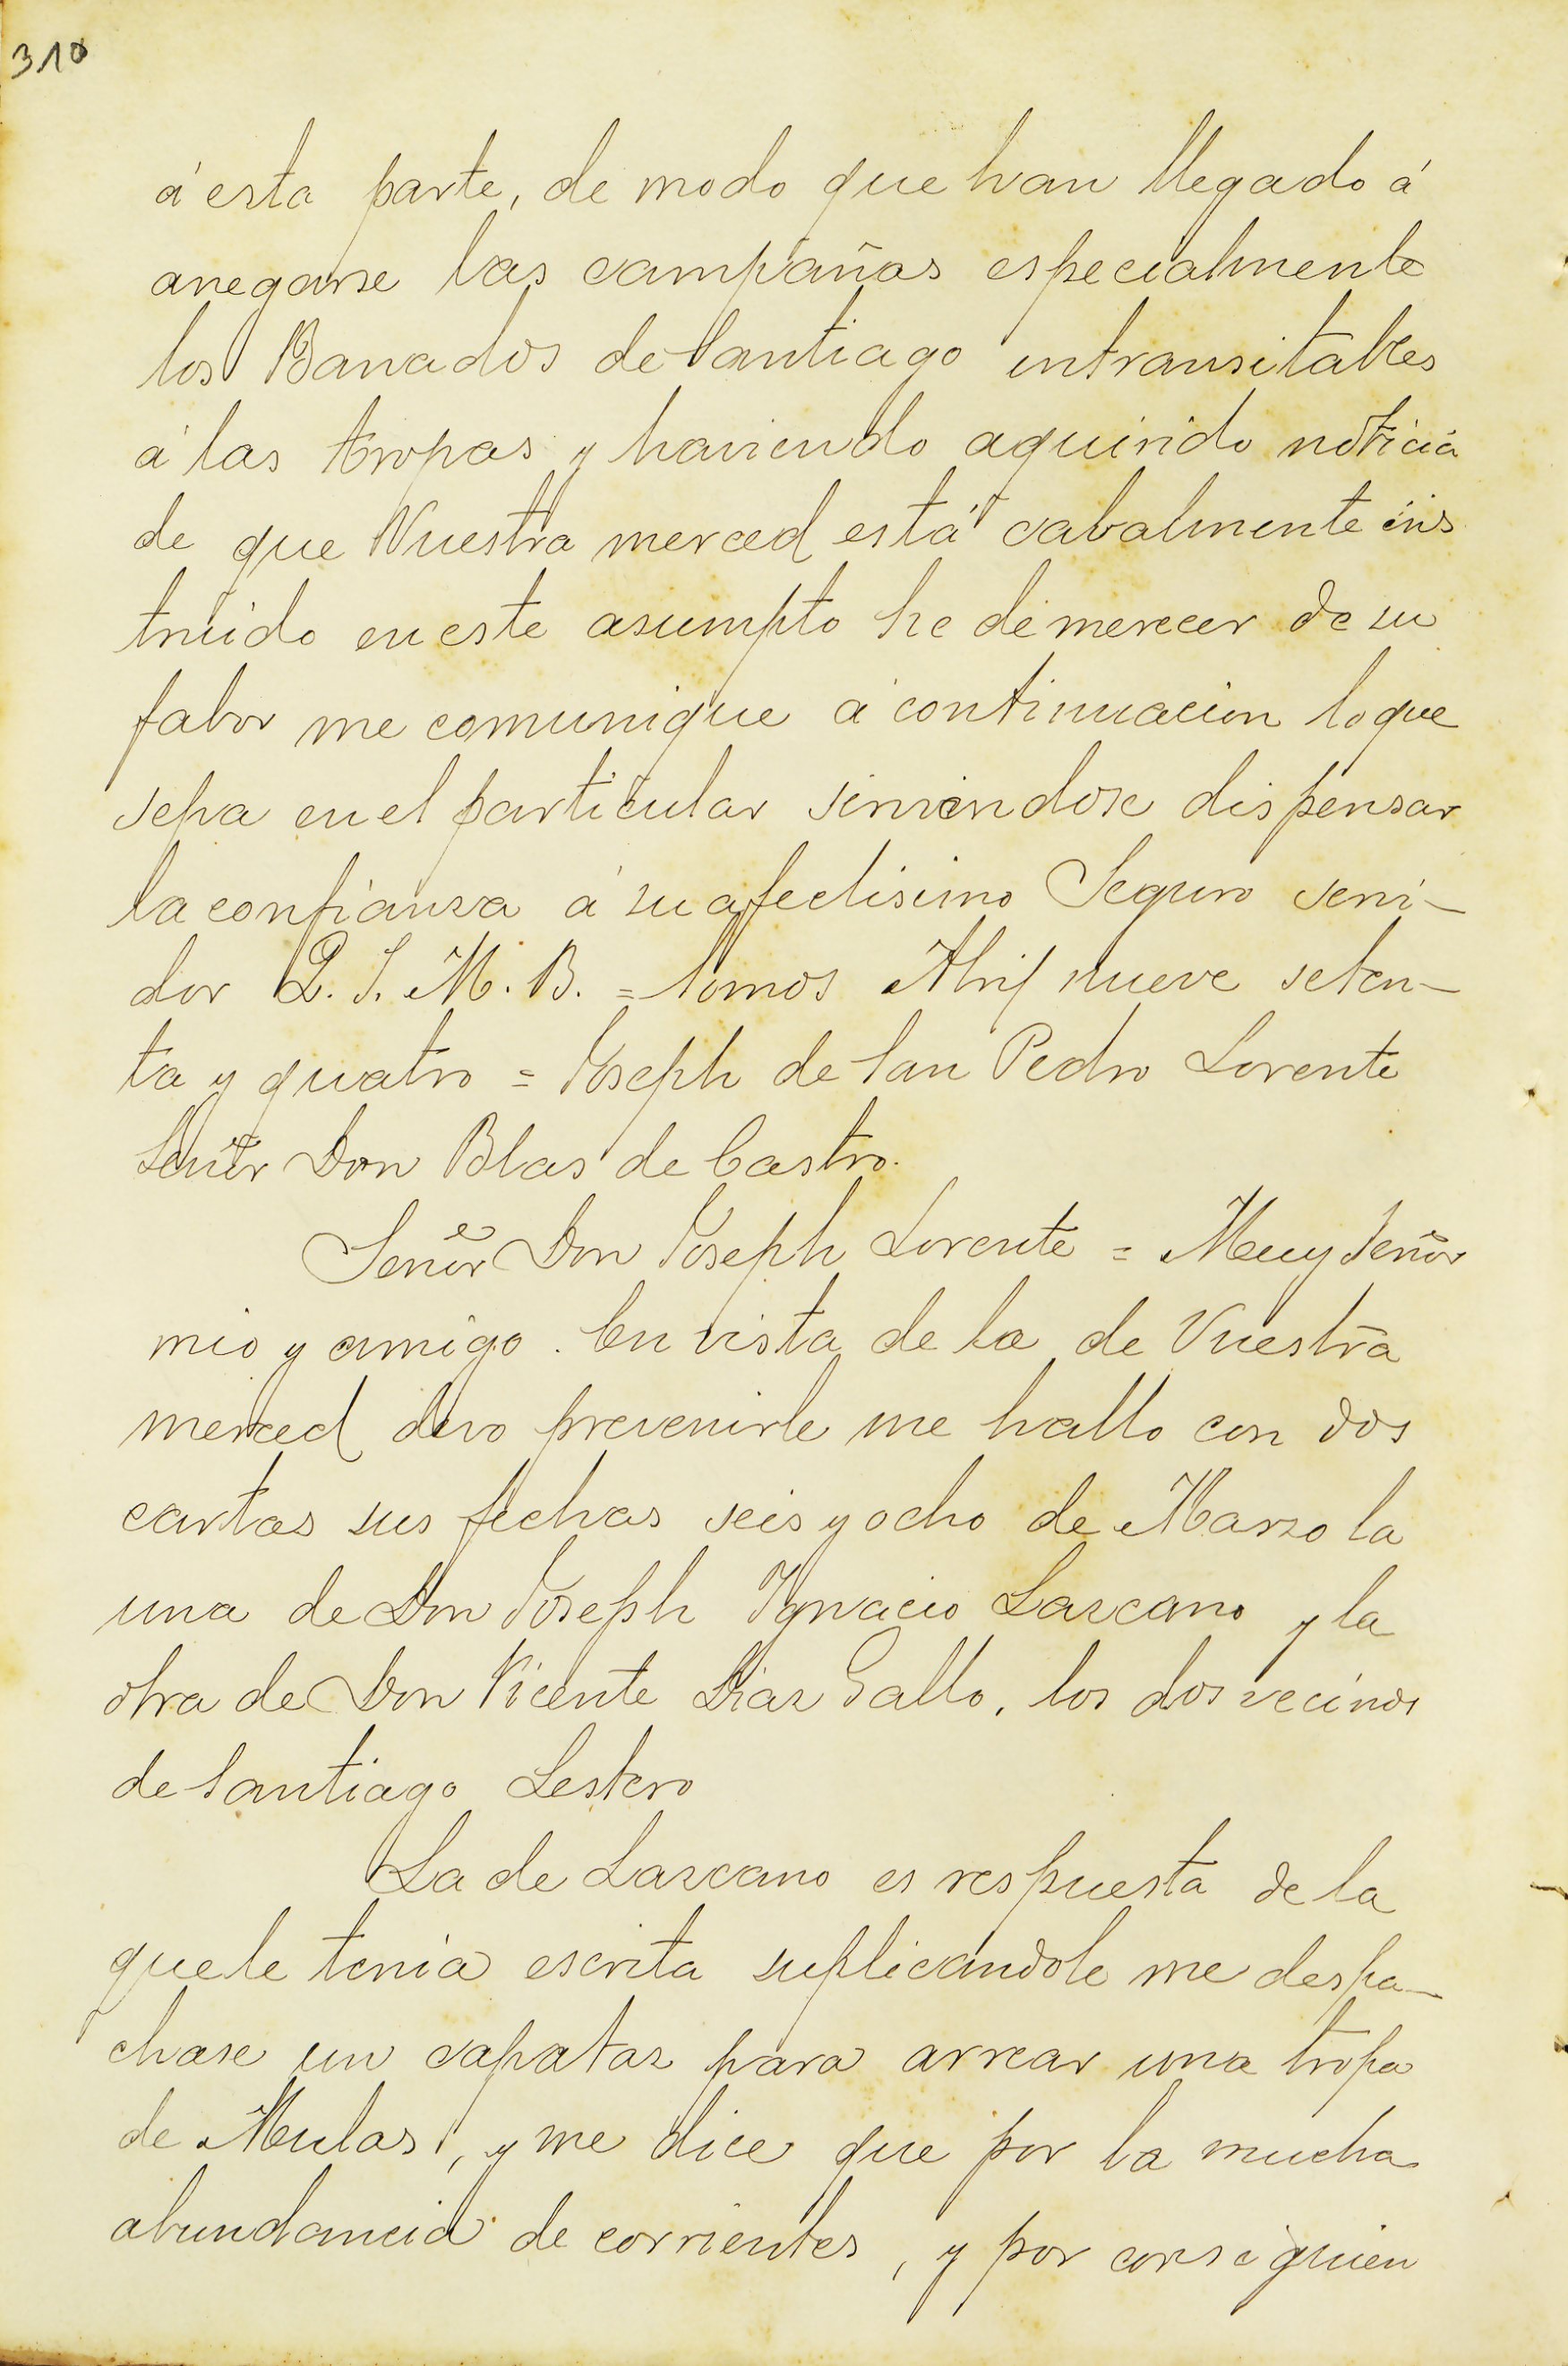 310
á esta parte, de modo que han llegado á
anegarse las campañas especialmente
los Banados de Santiago intransitables
á las tropas y haviendo aquirido noticia
de que Vuestra merced está cabalmente ins
truido en este asumpto he de merecer de su
fabor me comunique á continuacion lo que
sepa en el particular sirviendose dispensar
la confianza á su afectisimo Seguro servi-
dor Q. S. M. B. = Somos Abril nueve seten-
ta y quatro = Joseph de San Pedro Lorente
Señor Don Blas de Castro.
Señor Don Joseph Lorente = Muy Señor
mio y amigo. En vista de la de Vuestra
merced devo prevenirle me hallo con dos
cartas sus fechas seis y ocho de Marzo la
una de Don Joseph Ygnacio Lazcano y la
otra de Don Vicente Diaz Gallo, los dos vecinos
de Santiago Lestero
La de Lazcano es respuesta de la
que le tenia escrita suplicandole me despa-
chase un capataz para arrear una tropa
de Mulas, y me dice que por la mucha
abundancia de corrientes, y por consiguien